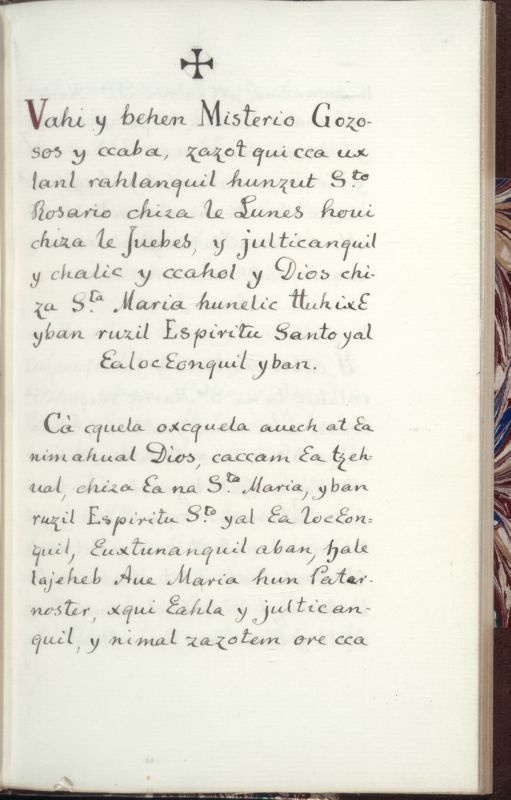 ✠
Vahi y behen Misterio Gozo-
sos y ccaba, zazot quicca ux
lanl rahlanquil hunzut S.to
Rosario chiza le Lunes houi
chiza le Juebes, y julticanquil
y chalic y ccahol y Dios chi-
za S.ta Maria hunelic ttuhixE
yban ruzil Espiritu Santo, yal
EalocEonquil yban.
Cà cquela oxcquela auech at Ea
nim ahual Dios, caccam Ea tzeh-
ual, chiza Ea na S.ta Maria, yban
ruzil Espiritu S.to yal Ea locEon=
quil, Euxtunanquil aban, ꜧale
lajeheb Aue Maria hun Pater-
noster, xqui Eahla y jultican-
quil, y nimal zazotem ore cca